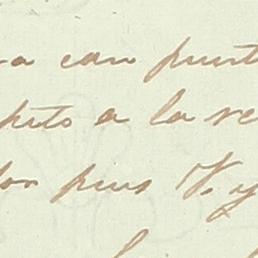 a con punt
peto a la re
dor pues V. y